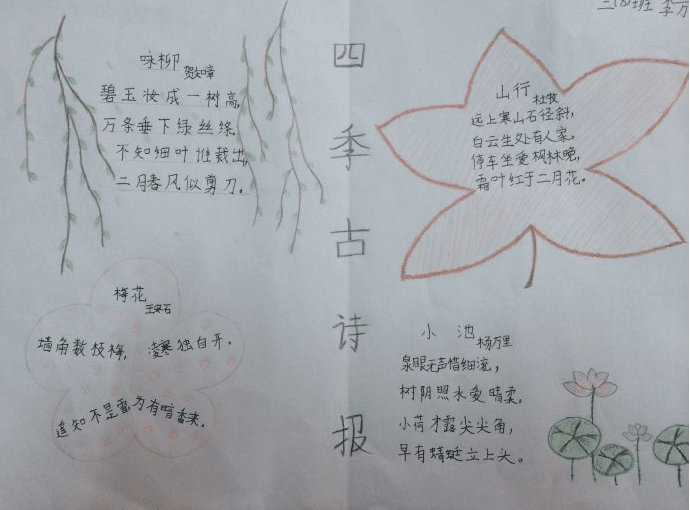 三(8)班 李万
四季古诗报
咏柳
贺知章
碧玉妆成一树高,
万条垂下绿丝绦.
不知细叶谁裁出,
二月春风似剪刀.
山行
杜牧
远上寒山石径斜,
白云生处有人家。
停车坐爱枫林晚,
霜叶红于二月花。
梅花
王安石
墙角数枝梅, 凌寒独自开.
遥知不是雪,为有暗香来.
小池
杨万里
泉眼无声惜细流,
树阴照水爱晴柔。
小荷才露尖尖角,
早有蜻蜓立上头。